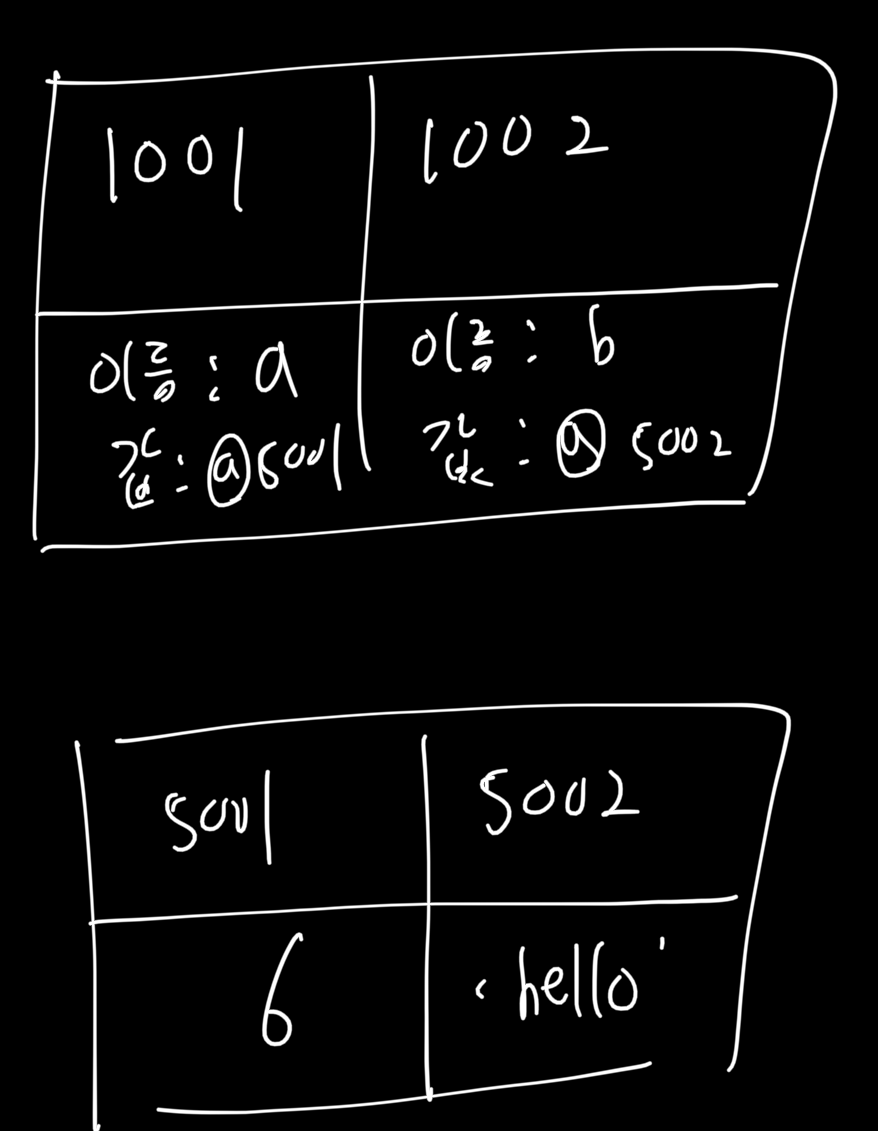 1001 1002
이름 : a 이름 : b
값 : @5001 값 : @ 5002
5001 5002
6 'hello'